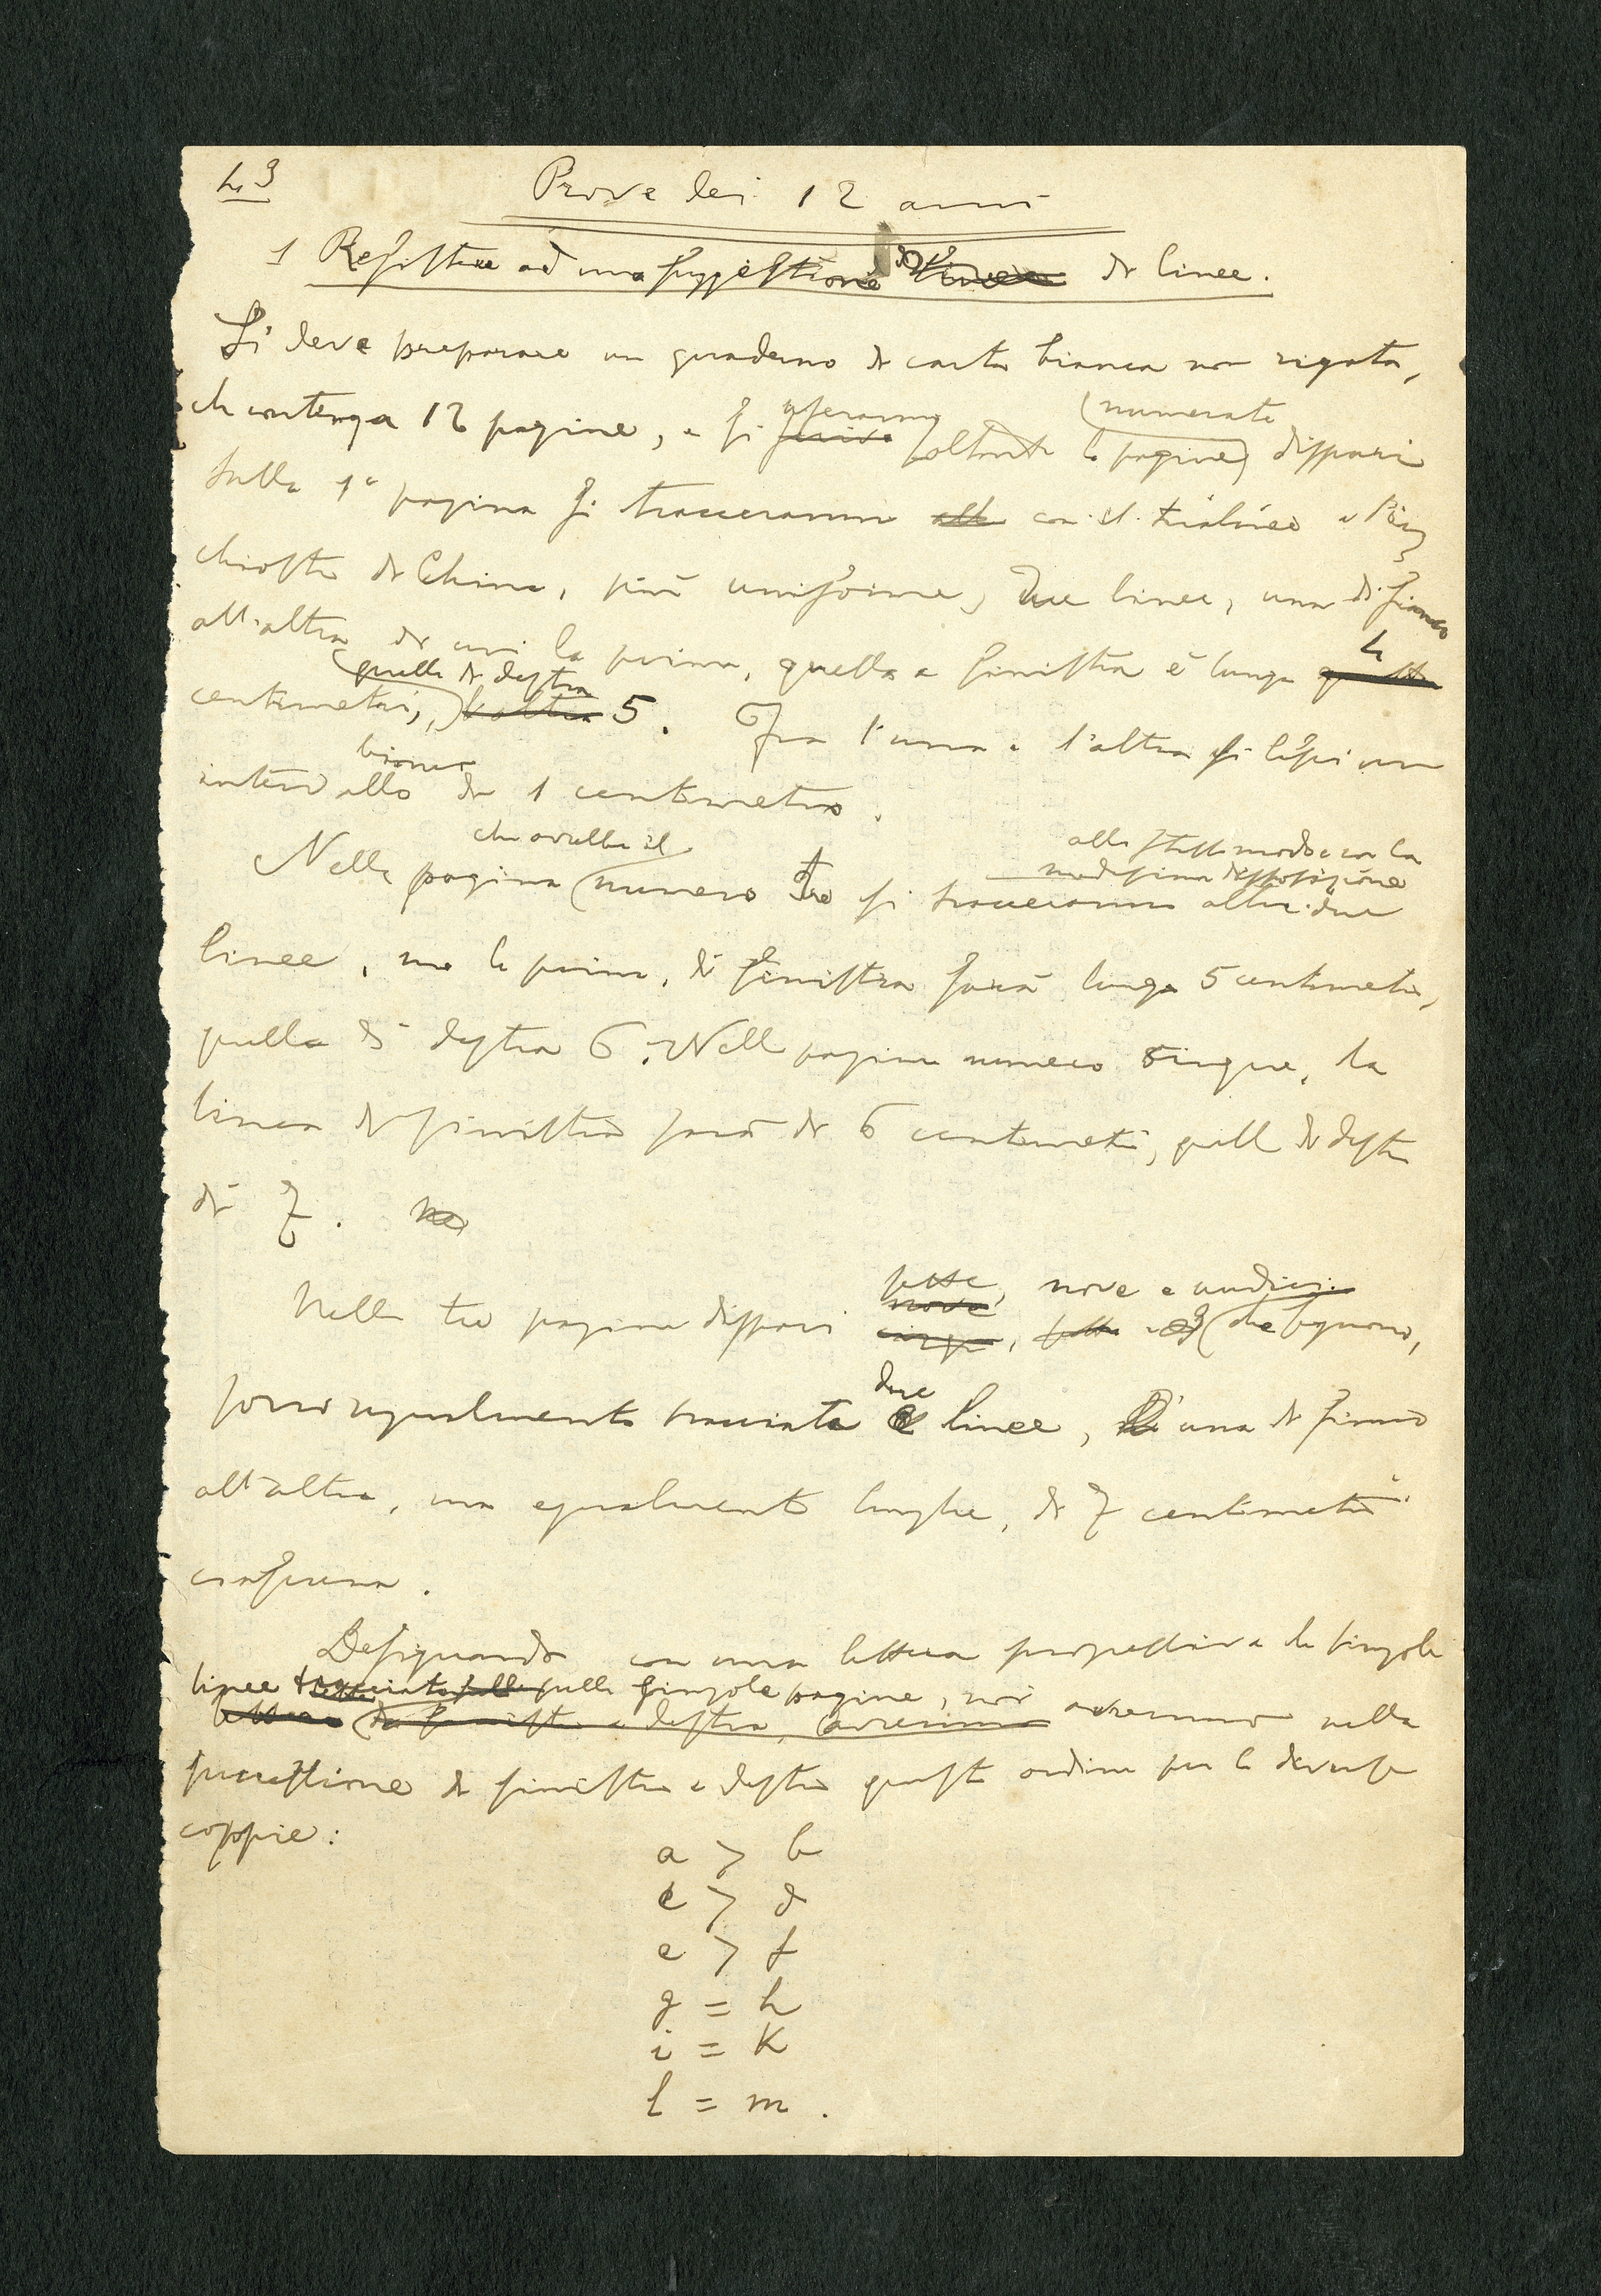 43
Prove dei 12 anni
1 Resistere ad una suggestione di linee.
Si deve preparare un quaderno di carta bianca non rigata,
che contenga 12 pagine, e si useranno soltanto le pagine (numerate) dispari
Sulla 1ª pagina si tracceranno con il tiralinee e l'in
chiostro di China, più uniforme, due linee, una di fianco
all'altra di cui la prima, quella a sinistra è lunga 4
centimetri, quella di destra 5. Fra l'una e l'altra si lasci un
intervallo bianco di 1 centimetro.
Nella pagina che avrà il numero tre si tracceranno allo stesso modo e con la medesima disposizione altre due
linee, ma la prima, di sinistra sarà lunga 5 centimetri,
quella di destra 6. Nella pagina numero cinque, la
linea di sinistra sarà di 6 centimetri, quella di destra
di 7.
Nelle tre pagine dispari sette, nove e undici che seguono,
sono ugualmente tracciate due linee, una di fianco
all'altra, ma egualmente lunghe, di 7 centimetri
ciascuna.
Designando con una lettera progressiva le singole
linee sulle singole pagine, noi avremmo nella
successione da sinistra a destra questo ordine per le diverse
coppie:
a > b
c > d
e > f
g = h
i = K
l = m.